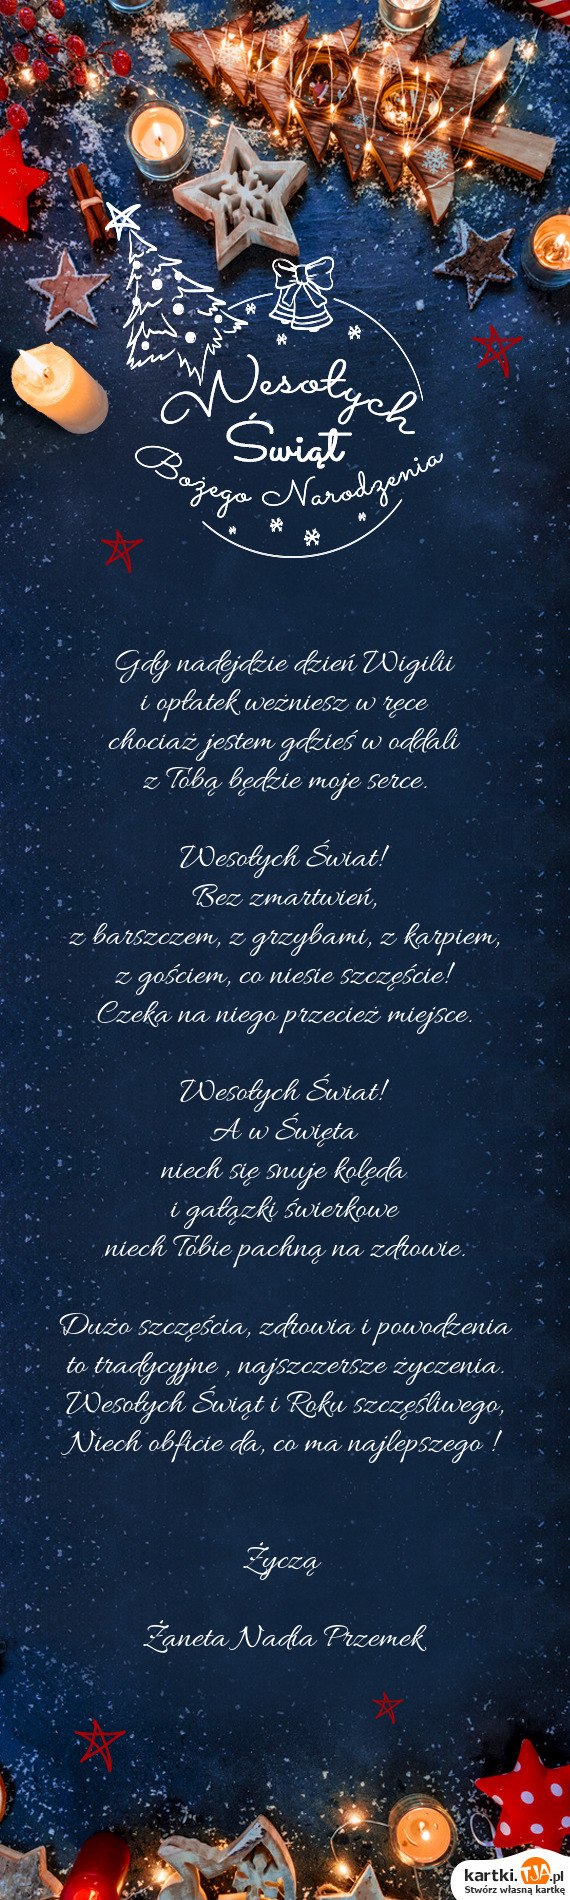 Wesołych
Świąt
Bożego Narodzenia
Gdy nadejdzie dzień Wigilii
i opłatek weźniesz w ręce
chociaż jestem gdzieś w oddali
z Tobą będzie moje serce.
Wesołych Świat!
Bez zmartwień,
z barszczem, z grzybami, z karpiem,
z gościem, co niesie szczęście!
Czeka na niego przecież miejsce.
Wesołych Świat!
A w Święta
niech się snuje kolęda
i gałązki świerkowe
niech Tobie pachną na zdrowie.
Dużo szczęścia, zdrowia i powodzenia
to tradycyjne , najszczersze życzenia.
Wesołych Świąt i Roku szczęśliwego,
Niech obficie da, co ma najlepszego !
Życzą
Żaneta Nadia Przemek
kartki.TJA.pl
Stwórz własną kartkę